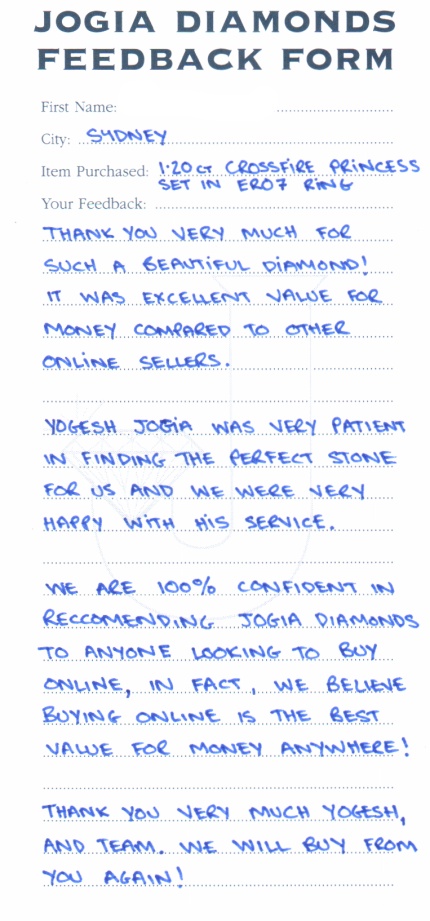 JOGIA DIAMONDS
FEEDBACK FORM
First Name:
City: SYDNEY
Item Purchased: 1.20 CT CROSSFIRE PRINCESS
SET IN ER07 RING
Your Feedback:
THANK YOU VERY MUCH FOR
SUCH A BEAUTIFUL DIAMOND!
IT WAS EXCELLENT VALUE FOR
MONEY COMPARED TO OTHER
ONLINE SELLERS.
YOGESH JOGIA WAS VERY PATIENT
IN FINDING THE PERFECT STONE
FOR US AND WE WERE VERY
HAPPY WITH HIS SERVICE.
WE ARE 100% CONFIDENT IN
RECCOMENDING JOGIA DIAMONDS
TO ANYONE LOOKING TO BUY
ONLINE, IN FACT, WE BELIEVE
BUYING ONLINE IS THE BEST
VALUE FOR MONEY ANYWHERE!
THANK YOU VERY MUCH YOGESH,
AND TEAM. WE WILL BUY FROM
YOU AGAIN!